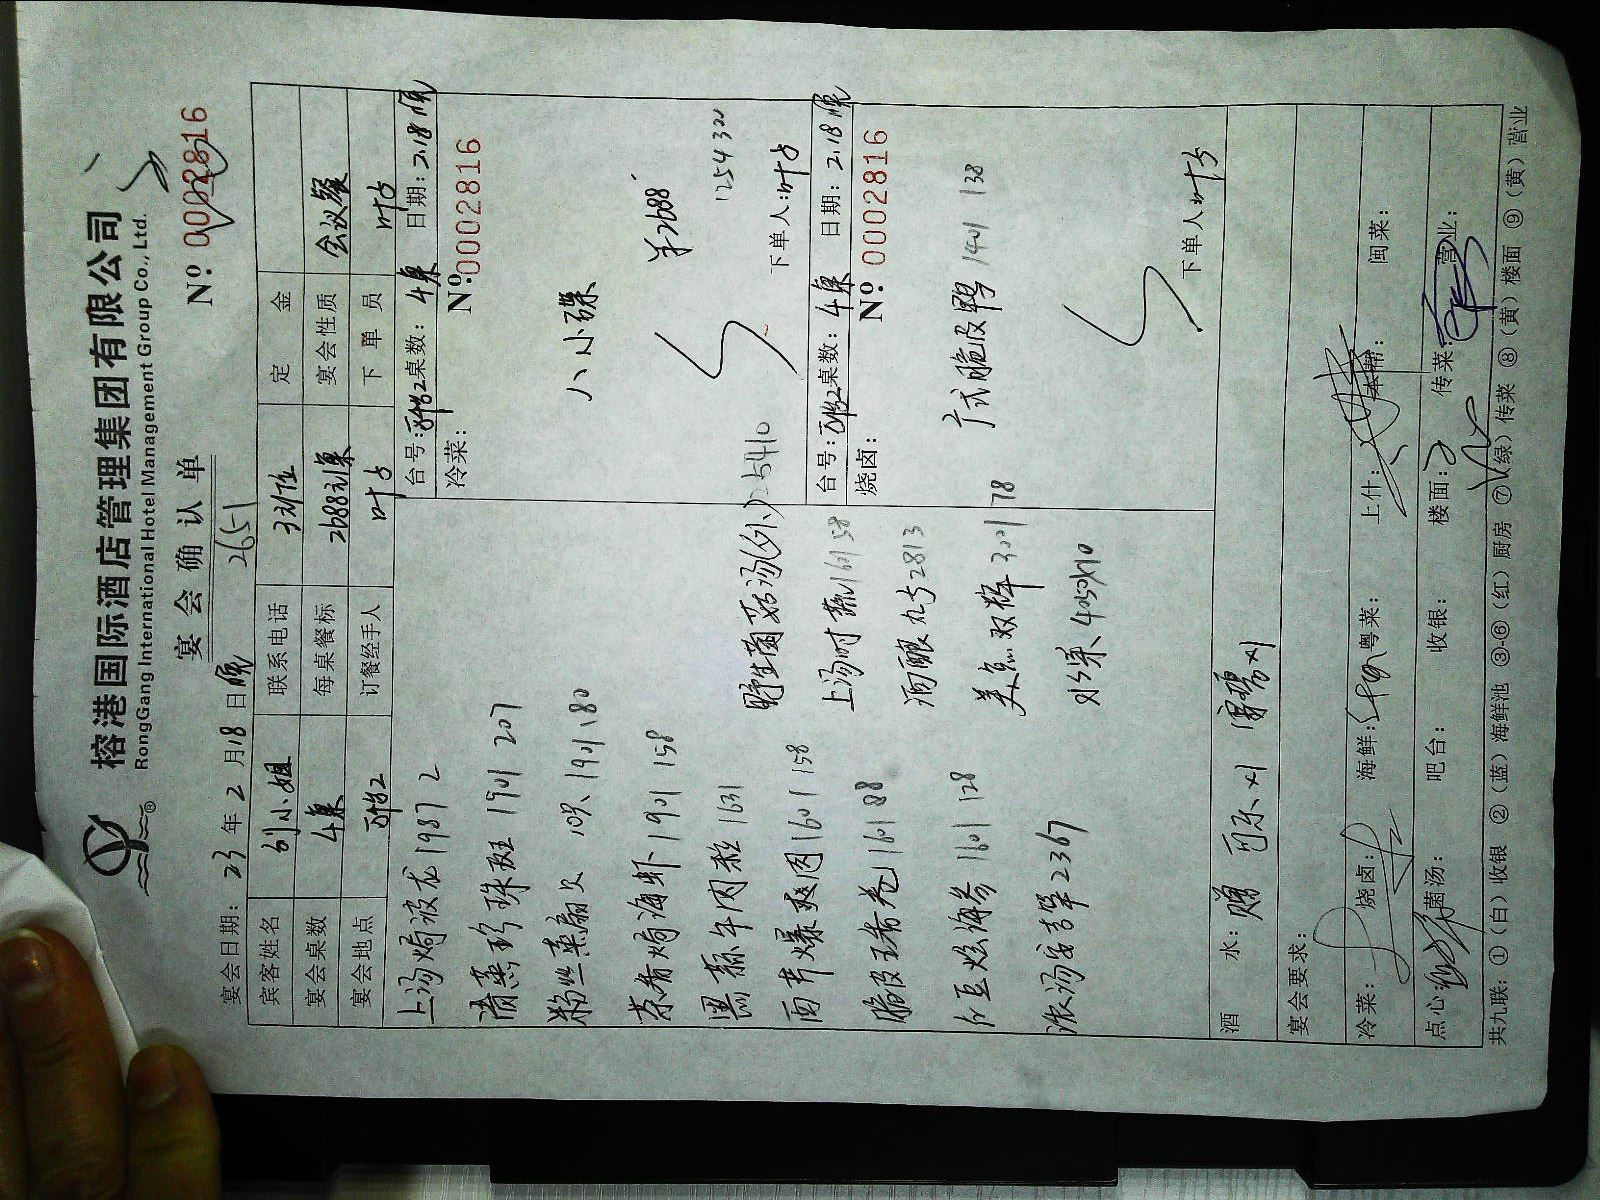 榕港国际酒店管理集团有限公司
RongGang International Hotel Management Group Co., Ltd.
宴会确认单
№ 0002816
宴会日期: 23 年 2 月 18 日 晚 2651
宾客姓名 刘小姐 联系电话 定金
宴会桌数 4桌 每桌餐标 2688元/桌 宴会性质 会议餐
宴会地点 订餐经手人 叶占 下单员 叶占
上汤焗波龙 1987 2
清蒸珍珠斑 1901 207
粉丝蒸扇贝 10只 1901 180
茶香焗海虾 1901 158
黑蒜牛肉粒 1631
西芹爆爽肉 1601 158
脆皮玳卷 1601 88
红豆烩海参 1601 128
浓汤 2367
野生菌菇汤(外) 25410
上汤时蔬 1601 58
酒酿丸子 2813
美点双辉 3201 78
水果 4050×10
台号: 桌数: 4桌 日期: 2.18 晚
冷菜: № 0002816
八小碟
单2688
1254320
下单人: 叶占
台号: 桌数: 4桌 日期: 2.18 晚
烧卤: № 0002816
广式脆皮鸭 1401 138
下单人: 叶占
酒水: 赠 可乐×1 雪碧×1
宴会要求:
冷菜: 烧卤: 海鲜: 粤菜: 上什: 本帮: 闽菜:
点心: 菌汤: 吧台: 收银: 楼面: 传菜: 营业:
共九联: ①(白)收银 ②(蓝)海鲜池 ③-⑥(红)厨房 ⑦(绿)传菜 ⑧(黄)楼面 ⑨(黄)营业